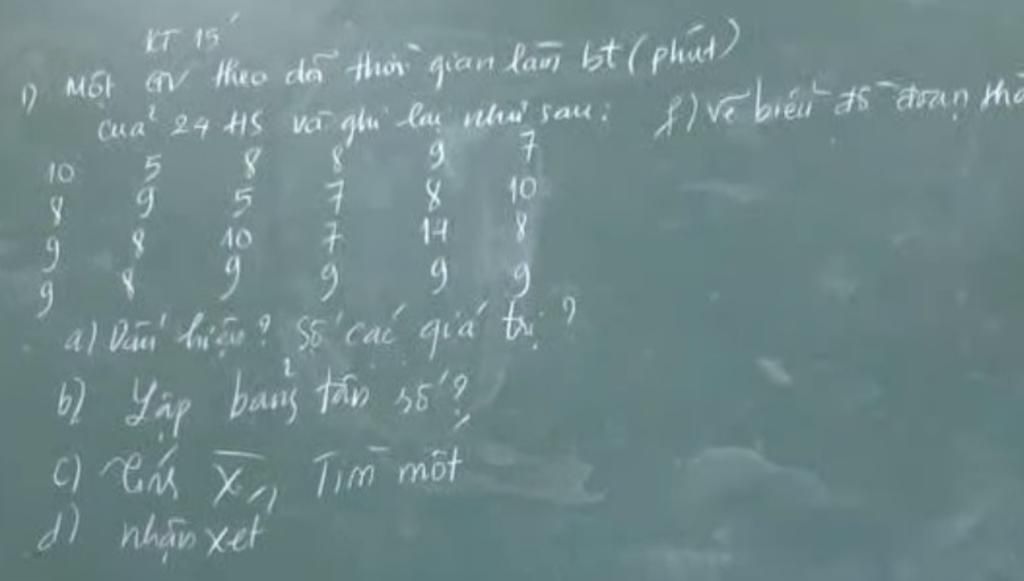 KT 15'
1) Một GV theo dõi thời gian làm bt (phút)
của 24 HS và ghi lại như sau:
10 5 8 8 9 7
8 9 5 7 8 10
9 8 10 7 14 8
9 8 9 9 9 9
a) Dấu hiệu? Số các giá trị?
b) Lập bảng tần số?
c) Tính X̄, Tìm mốt
d) nhận xét
f) Vẽ biểu đồ đoạn